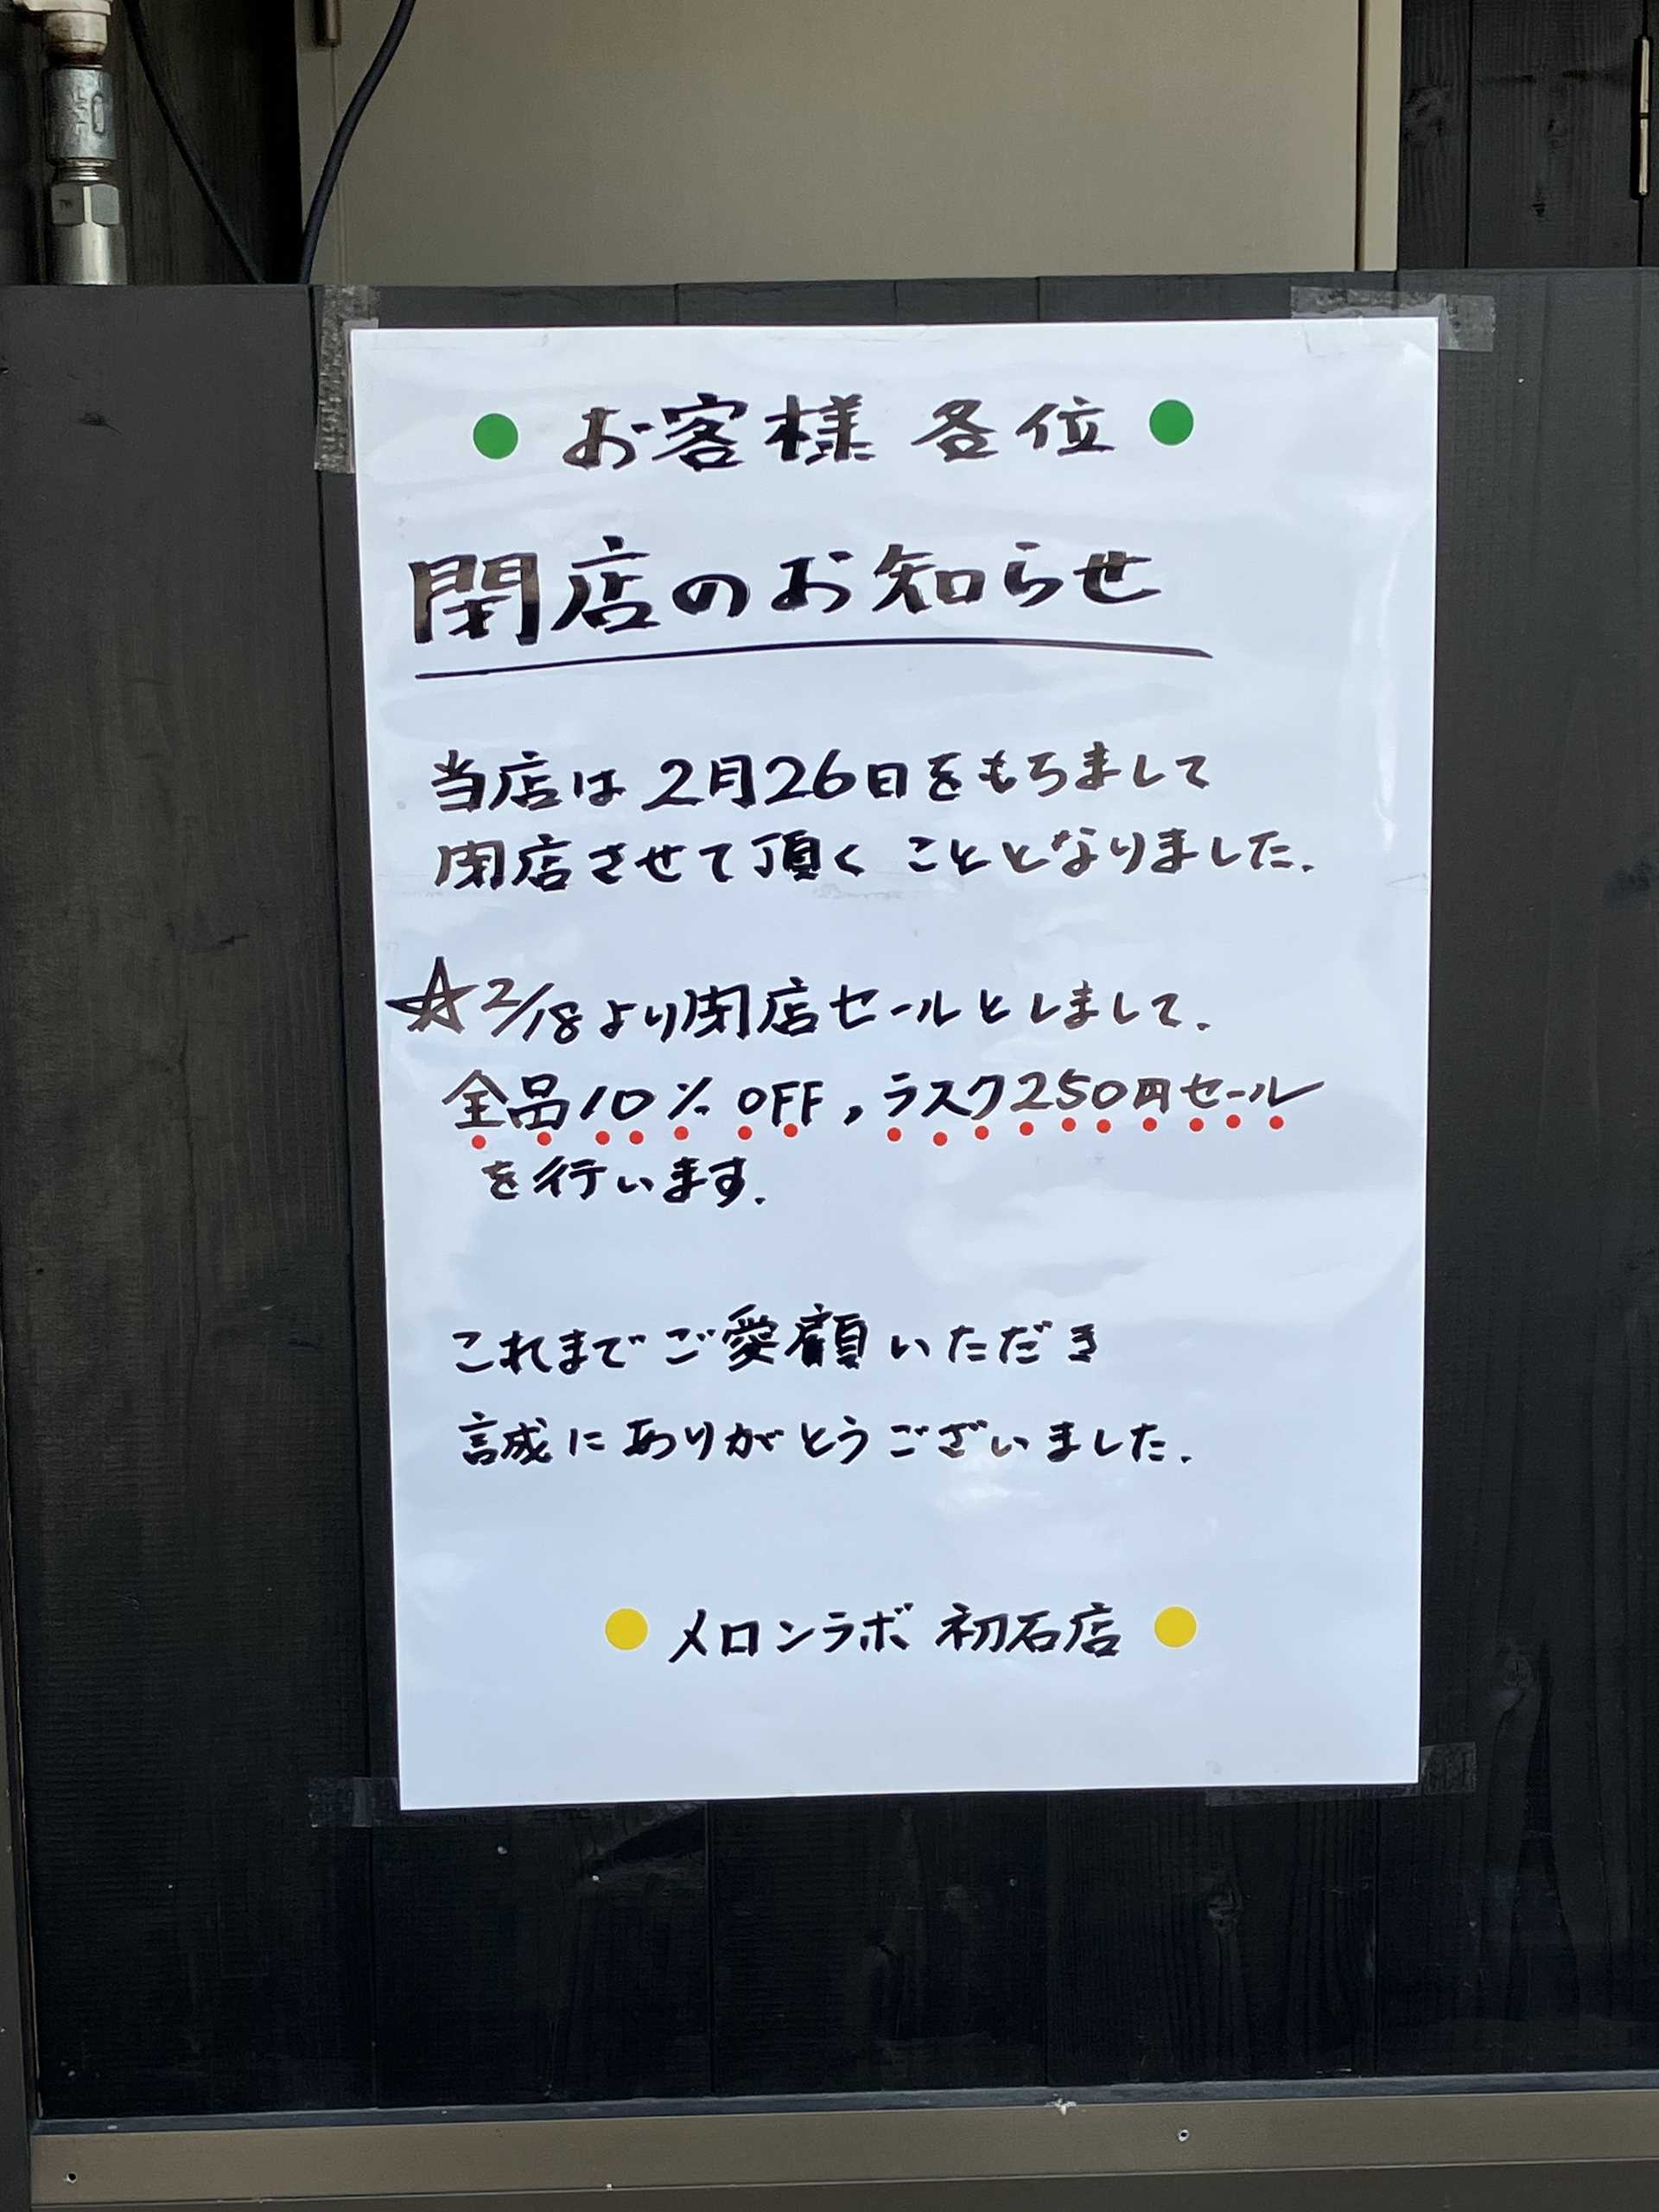 お客様 各位
閉店のお知らせ
当店は2月26日をもちまして
閉店させて頂くこととなりました.
☆2/18より閉店セールとしまして.
全品10% OFF, ラスク250円セール
を行います.
これまでご愛顧いただき
誠にありがとうございました.
メロンラボ 初石店